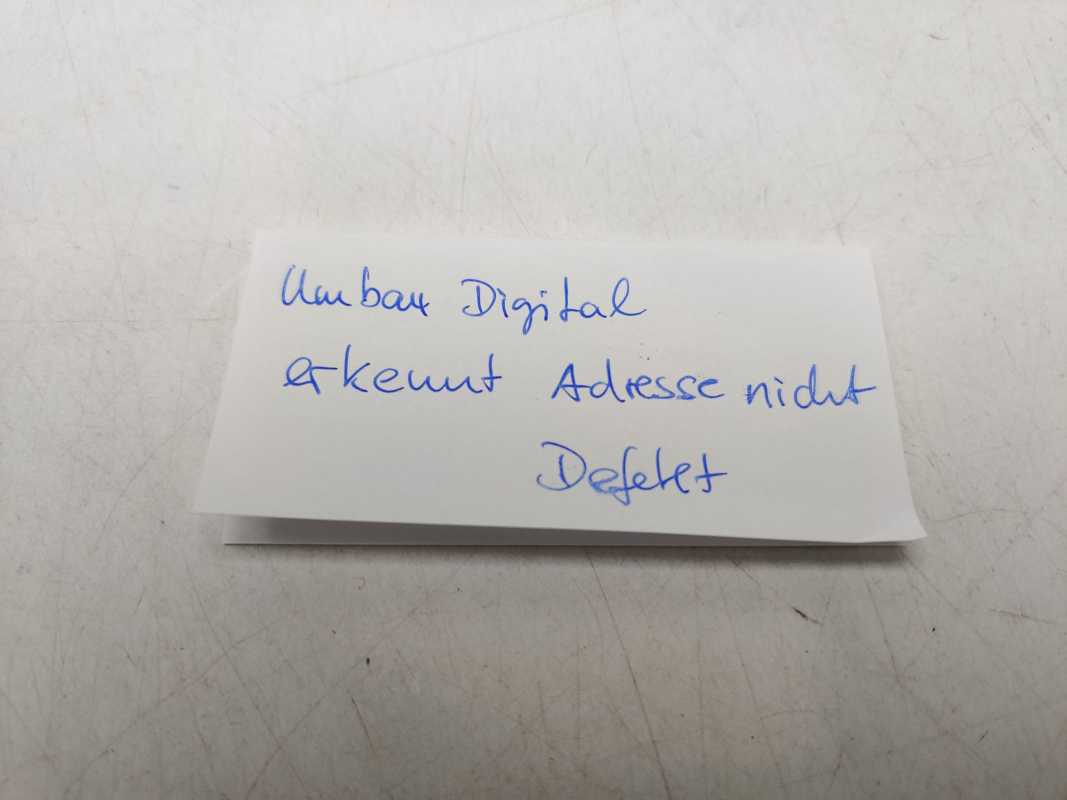 Umbau Digital
erkennt Adresse nicht
Defekt